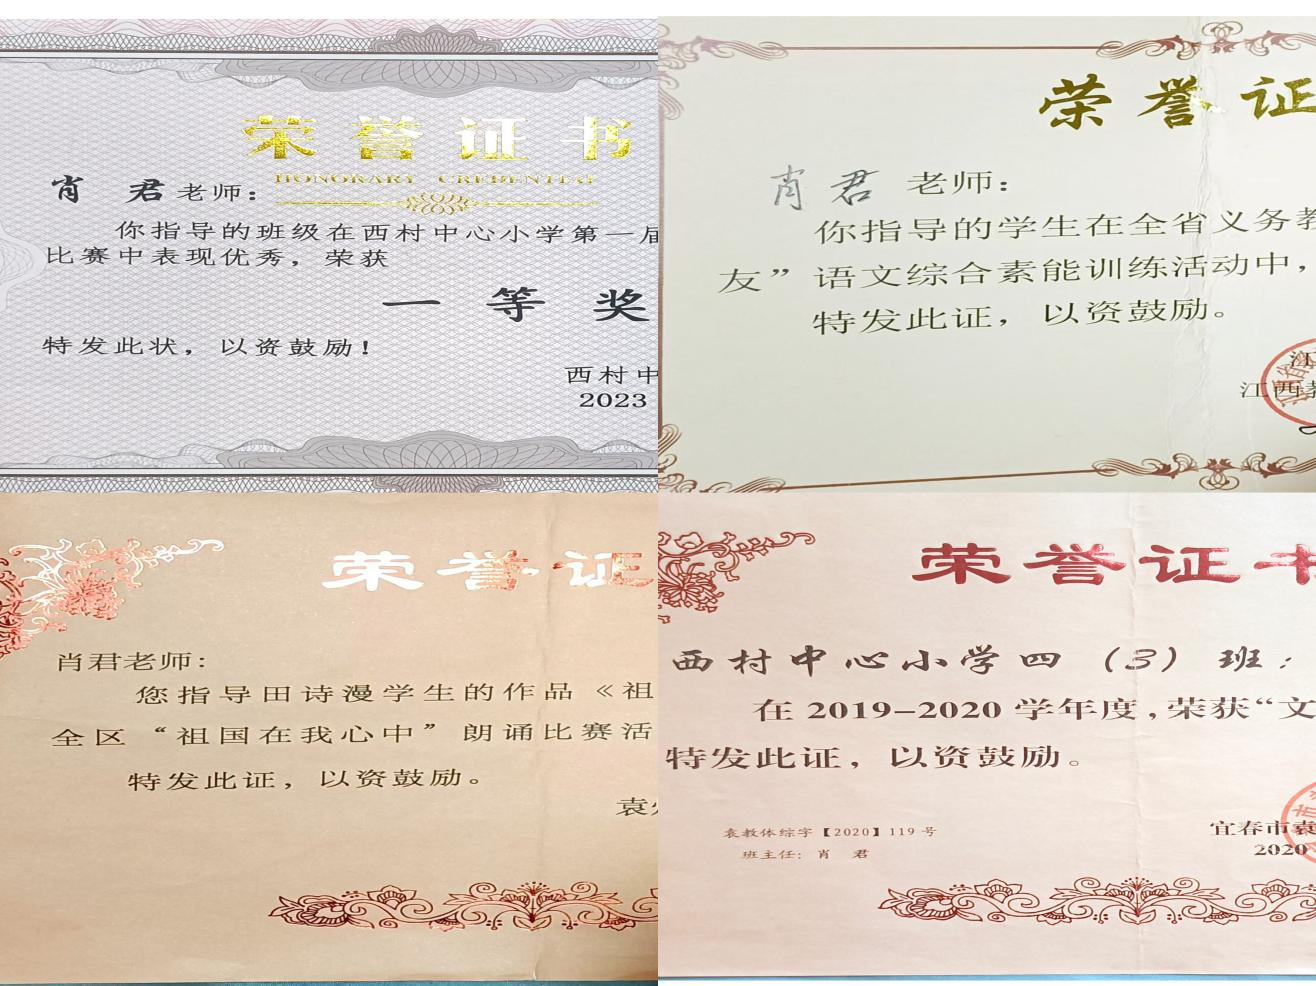 荣誉证书
HONORARY CREDENTIAL
肖 君老师：
你指导的班级在西村中心小学第一届
比赛中表现优秀，荣获
一等奖
特发此状，以资鼓励！
西村中
2023
荣誉证
肖君 老师：
你指导的学生在全省义务教
友”语文综合素能训练活动中，
特发此证，以资鼓励。
江西教
荣誉证
肖君老师：
您指导田诗漫学生的作品《祖
全区“祖国在我心中”朗诵比赛活
特发此证，以资鼓励。
袁
荣誉证书
西村中心小学四（3）班：
在2019-2020学年度，荣获“文
特发此证，以资鼓励。
袁教体综字【2020】119号
班主任：肖 君
宜春市袁
2020